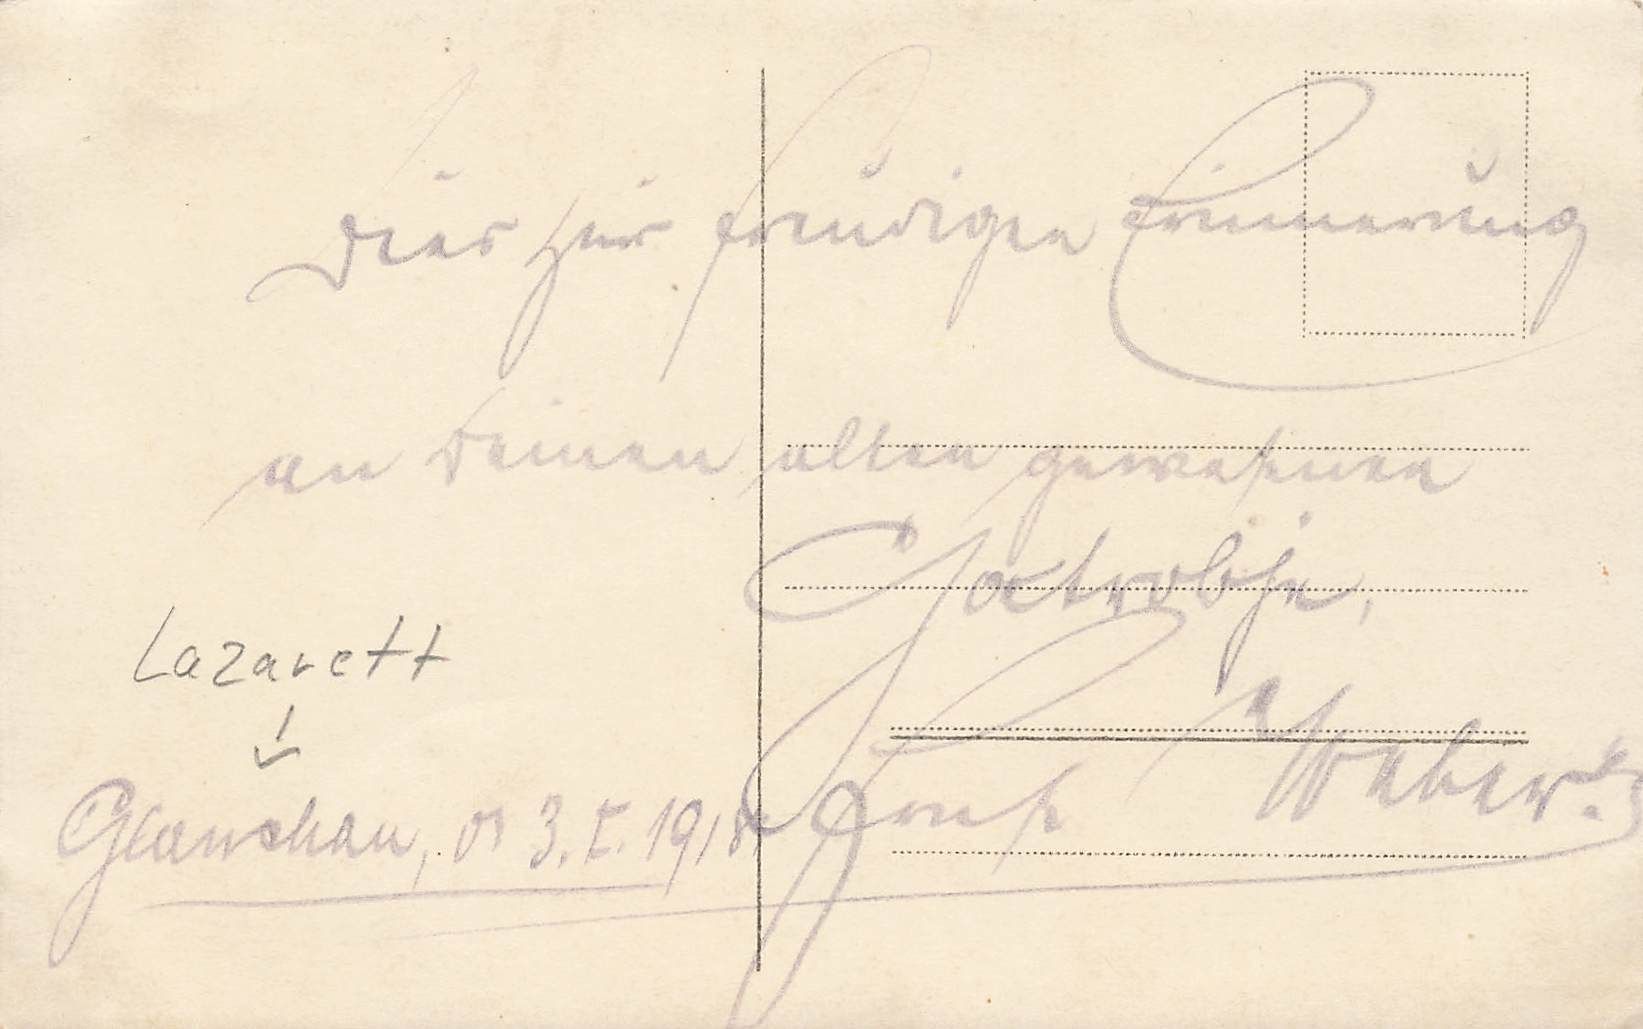 Dies zur freudigen Erinnerung
an Deinen alten gewesenen
Lazarett
Glauchau, d 3. I. 1918.
Ernst Weber.